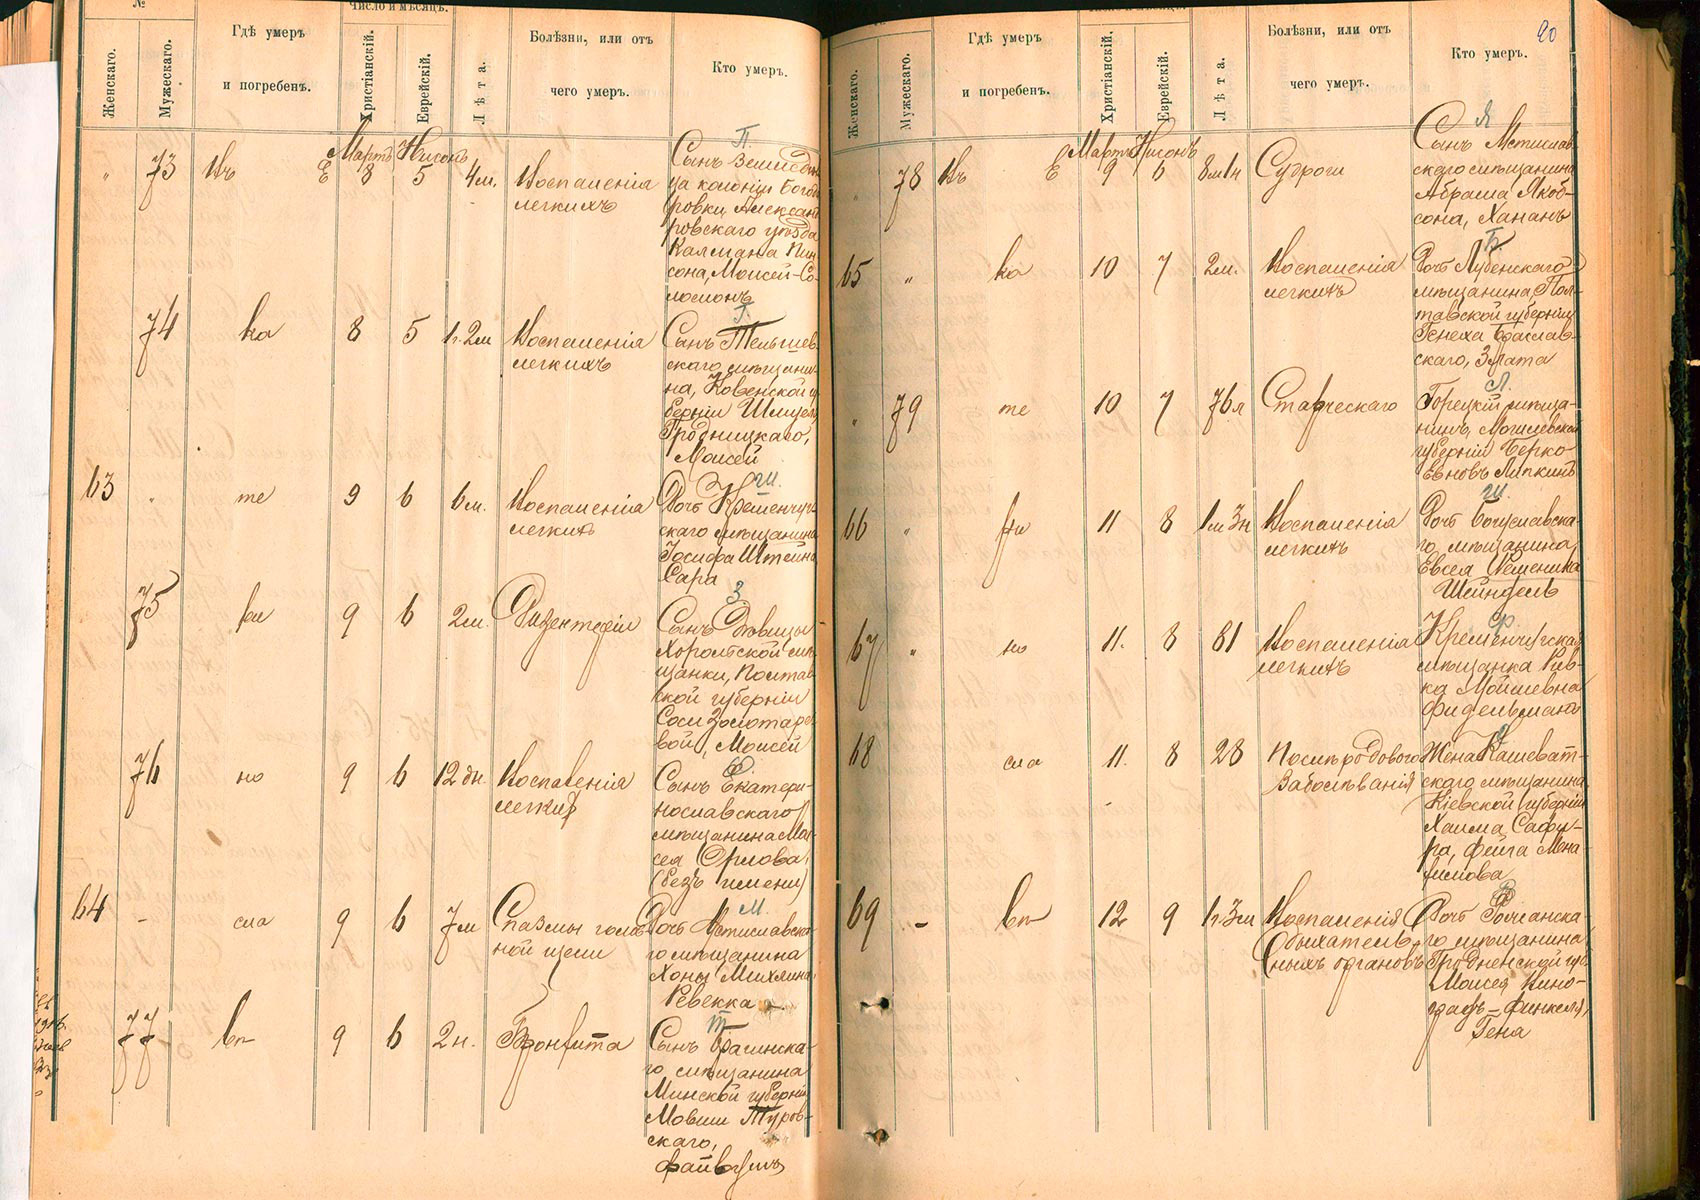 №
Число и мѣсяцъ.
Женскаго.
Мужескаго.
Гдѣ умеръ
и погребенъ.
Христіанскій.
Еврейскій.
Лѣта.
Болѣзни, или отъ
чего умеръ.
Кто умеръ.
Мартъ Нисонъ
П.
" 73 Въ Е 8 5 4 м. Воспаленія
легкихъ
Сынъ
ца колоніи Богода
ровки Александ
ровскаго уѣзда
Калмана Пин
сона, Моисей-Со-
ломонъ
Г.
74 ка 8 5 1 г. 2 м Воспаленія
легкихъ
Сынъ Тельшев
скаго мѣщани-
на, Ковенской гу
берніи Шмуеля
Гродницкаго,
Моисей
Ш.
63 " те 9 6 6 м. Воспаленія
легкихъ
Дочь Кременчуг
скаго мѣщанина
Іосифа Штейна
Сара
З.
75 ри 9 6 2 м. Дизентеріи
Сынъ вдовицы
Хорольской мѣ
щанки, Полтав
ской губерніи
Соси Золотаре
вой, Моисей
76 но 9 6 12 дн. Воспаленія
легких
Сынъ Екатери-
нославскаго
мѣщанина Мои
сея Орлова,
(безъ имени)
М.
64 - сла 9 6 7 м Спазмы голо
ной щели
Дочь Мстиславска
го мѣщанина
Хоны Михлина,
Ревекка
Т.
77 въ 9 6 2 н. Бронхита
Сынъ Брагинска-
го мѣщанина
Минской губерніи
Мовши Туров-
скаго,
Файвушъ
20
Женскаго.
Мужескаго.
Гдѣ умеръ
и погребенъ.
Христіанскій.
Еврейскій.
Лѣта.
Болѣзни, или отъ
чего умеръ.
Кто умеръ.
Мартъ Нисонъ
Я
78 Въ Е 9 6 8 м 1 н Судроги
Сынъ Мстислав
скаго мѣщанина
Абрама Якоб-
сона, Хананъ
Б
65 " ка 10 7 2 м. Воспаленія
легкихъ
Дочь Лубенскаго
мѣщанина, Пол-
тавской губерніи
Генеха Браслав-
скаго, Злата
Л.
" 79 те 10 7 76 л Старческаго
Горецкій мѣща-
нинъ, Могилевской
губерніи Берко
Евновъ Липкинъ
66 " ри 11 8 1 м 3 н Воспаленія
легкихъ
Дочь Богуславска-
го мѣщанина
Евсея
Шейндель
Ф.
67 " но 11. 8 81 Воспаленія
легкихъ
Кременчугская
мѣщанка Рив-
ка Мойшевна
Фидельманъ
68 сла 11. 8 28 Послѣродового
заболѣванія
Жена Кашеват-
скаго мѣщанина
Кіевской губерніи
Хаима Сафи-
ра, Фейга Мена-
химова
69 - въ 12 9 1 г. 3 м Воспаленія
дыхатель-
ныхъ органовъ
Дочь
го мѣщанина,
Гродненской губ.
Моисея Вино-
градъ-Финкеля,
Гена